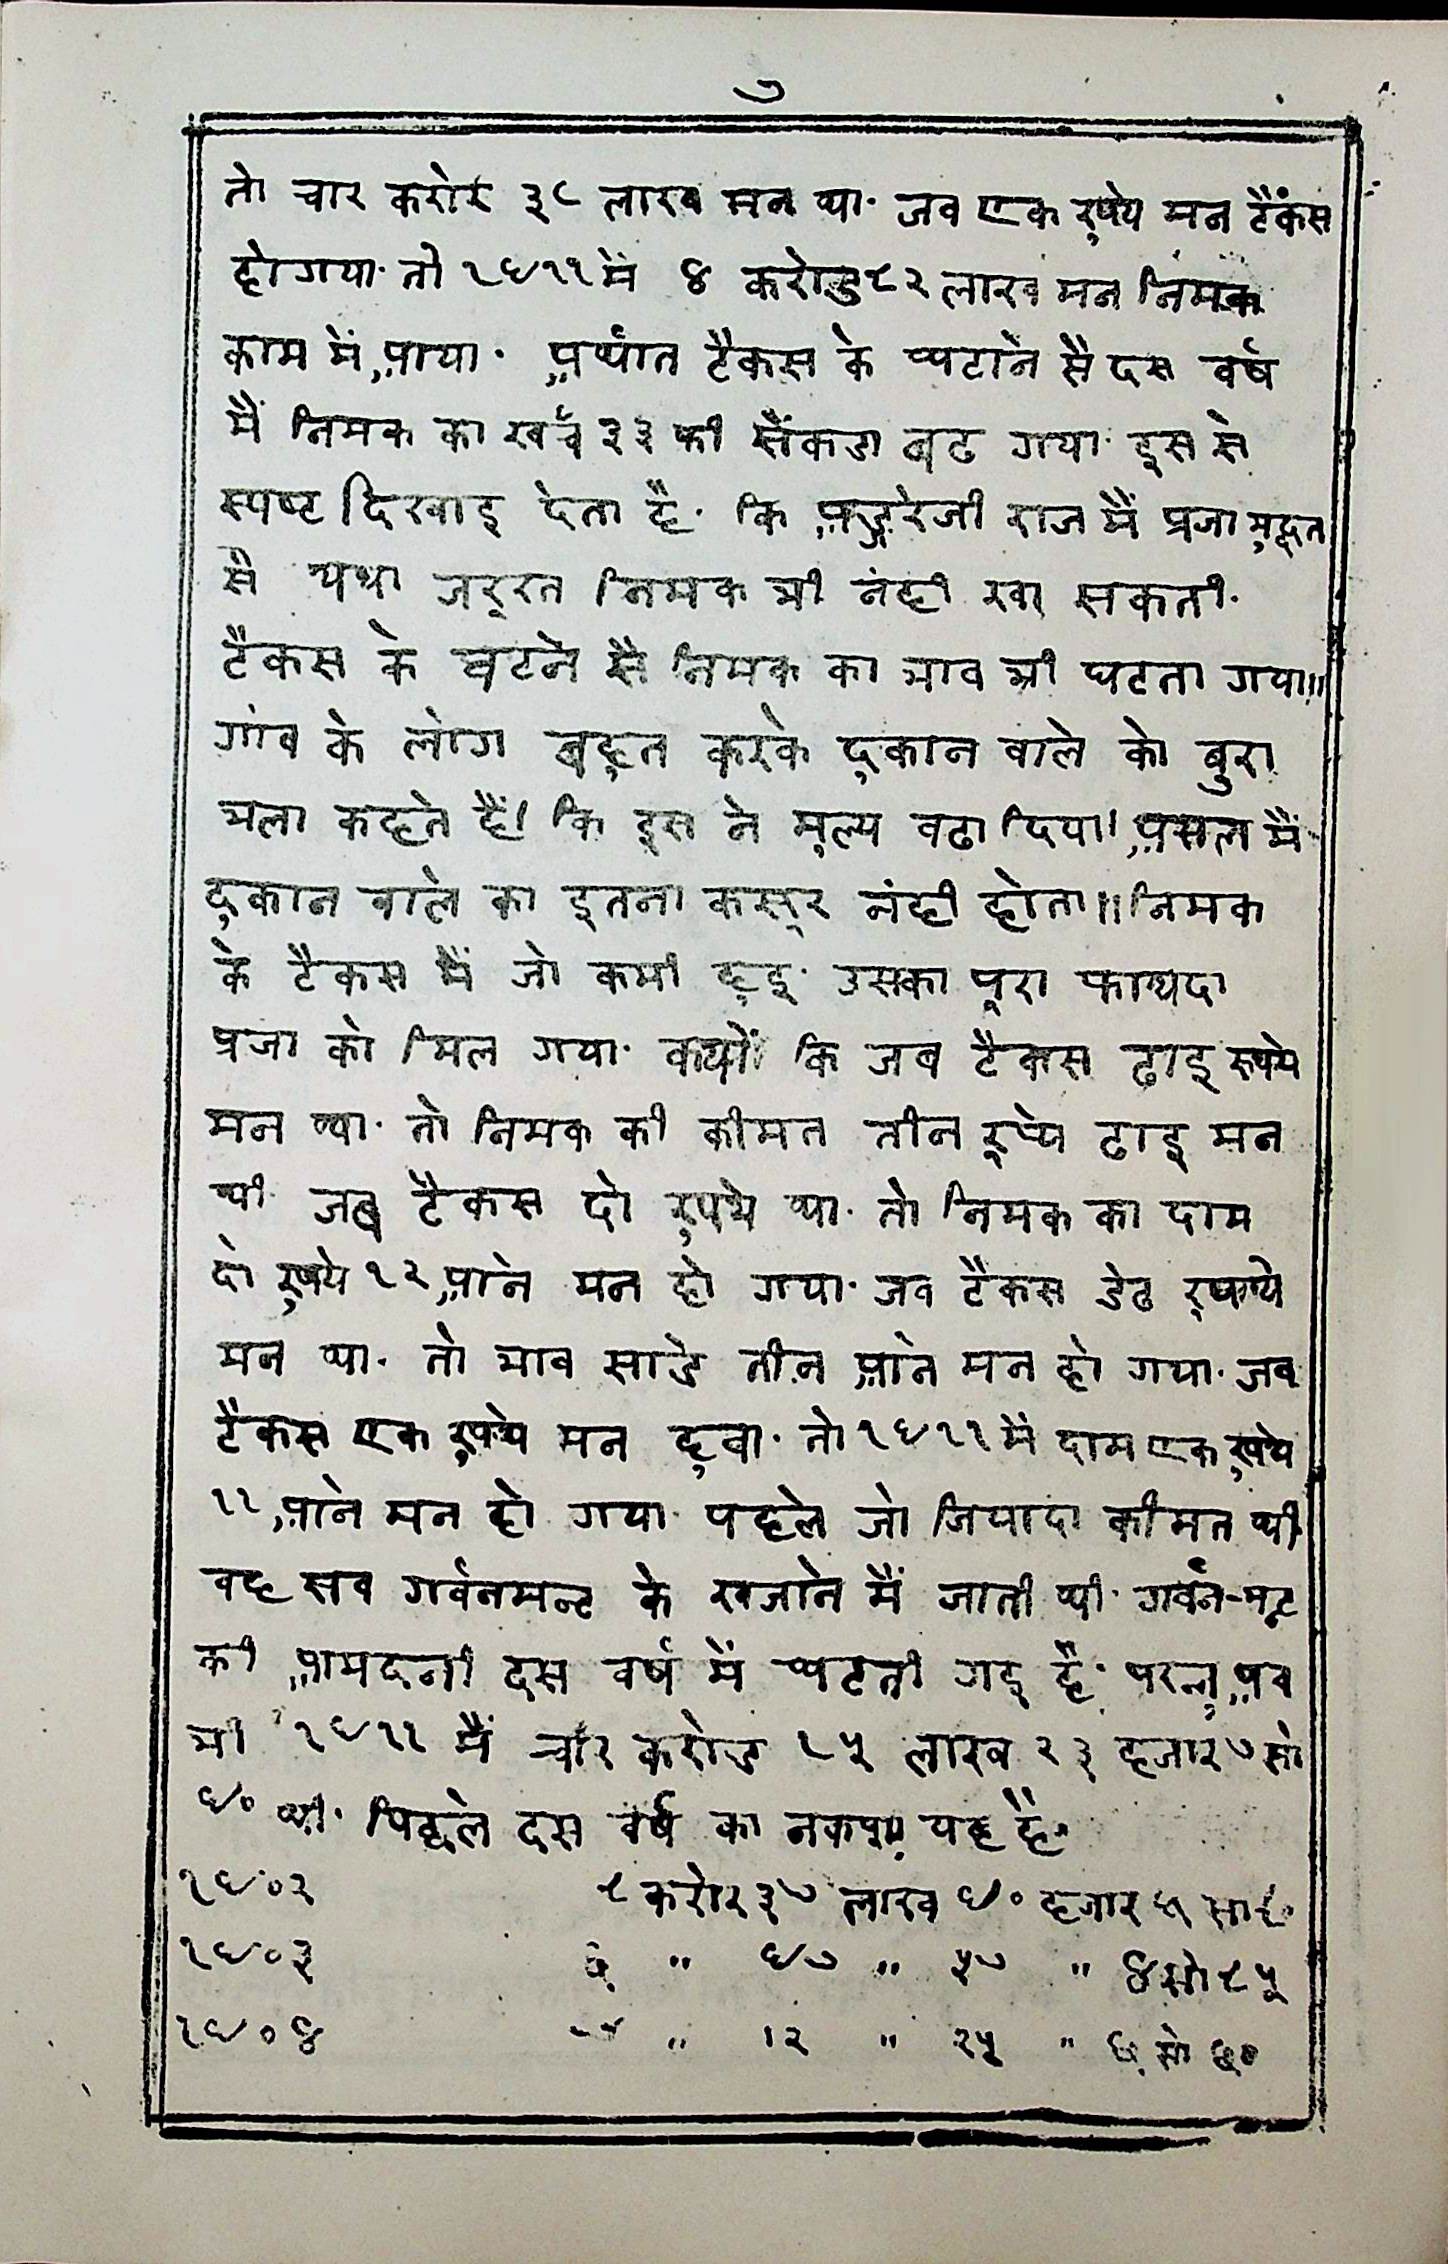 ७
तो चार करोर ३८ लाख मन था. जव एक रुपये मन टैकंस
होगया. तो १९११ में ४ करोड ८२ लाख मन निमक
काम में आया. अर्थात टैकस के घटाने सै दस वर्ष
मैं निमक का खर्च ३३ की सैंकडा बढ गया. इस से
स्पष्ट दिखाइ देता है. कि अङ्गरेजी राज मैं प्रजा
सै यथा जरूरत निमक भी नंही खा सकती.
टैकस के घटने सै निमक का भाव भी घटता गया॥
गांव के लोग बहुत करके दुकान वाले को बुरा
भला कहते हैं। कि इस ने मूल्य वढा दिया। असल मैं
दुकान वाले का इतना कसूर नंही होता॥ निमक
के टैकस मैं जो कमी हुइ. उसका पूरा फायदा
प्रजा को मिल गया. कयों कि जव टैकस ढाइ रुपये
मन था. तो निमक की कीमत तीन रुपये ढाइ मन
थी. जब टैकस दो रुपये था. तो निमक का दाम
दो रुपये १२ आने मन हो गया. जव टैकस डेढ रुपये
मन था. तो भाव साडे तीन आने मन हो गया. जव
टैकस एक रुपये मन हुवा. तो १९११ मैं दाम एक रुपये
११ आने मन हो गया. पहले जो जियादा कीमत थी
वह सव गर्वनमन्ट के खजाने मैं जाती थी. गर्वन-मन्ट
की आमदनी दस वर्ष में घटती गइ है. परन्तु अव
भी १९११ मैं चार करोड १५ लाख २३ हजार ७ सो
९० थी. पिछले दस वर्ष का नकशा यह है.
१९०२ ८ करोर ३७ लाख ९० हजार ५ सो
१९०३ ७ " ९७ " ५७ " ४ सो ८५
१९०४ " १२ " २५ " ६ सो ७०